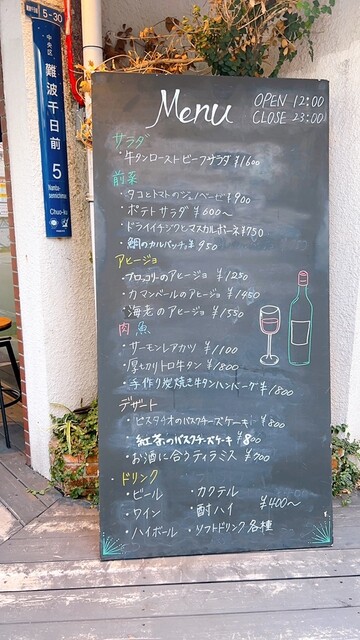 5-30
中央区
難波千日前
5
Namba-
sennichimae
Chuo-ku
Menu
OPEN 12:00
CLOSE 23:00
サラダ
・牛タンローストビーフサラダ ¥1600
前菜
・タコとトマトのジェノベーゼ ¥900
・ポテトサラダ ¥600~
・ドライイチジクとマスカルポーネ ¥750
・鯛のカルパッチョ ¥950
アヒージョ
・ブロッコリーのアヒージョ ¥1250
・カマンベールのアヒージョ ¥1450
・海老のアヒージョ ¥1550
肉 魚
・サーモンレアカツ ¥1100
・厚切りトロ牛タン ¥1800
・手作り炭焼き牛タンハンバーグ ¥1800
デザート
・ピスタチオのバスクチーズケーキ ¥800
・紅茶のバスクチーズケーキ ¥800
・お酒に合うティラミス ¥700
・ドリンク
・ビール ・カクテル
・ワイン ・酎ハイ ¥400~
・ハイボール ・ソフトドリンク各種